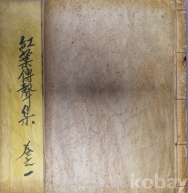 紅葉傳聲集
卷之一
kobay